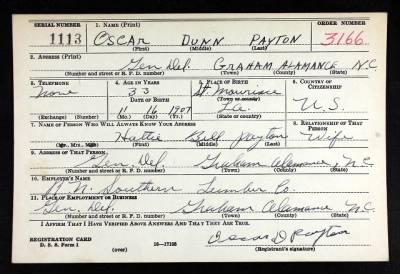 SERIAL NUMBER 1. NAME (Print) ORDER NUMBER
1113 OSCAR DUNN PAYTON 3166
(First) (Middle) (Last)
2. ADDRESS (Print)
Gen Del. GRAHAM ALAMANCE N.C.
(Number and street or R. F. D. number) (Town) (County) (State)
3. TELEPHONE 4. AGE IN YEARS 5. PLACE OF BIRTH 6. COUNTRY OF CITIZENSHIP
None 33 St. Maurice U.S.
DATE OF BIRTH (Town or county)
1 16 1907 La.
(Exchange) (Number) (Mo.) (Day) (Yr.) (State or country)
7. NAME OF PERSON WHO WILL ALWAYS KNOW YOUR ADDRESS 8. RELATIONSHIP OF THAT PERSON
Hattie Bell Payton Wife
(Mr., Mrs., Miss) (First) (Middle) (Last)
9. ADDRESS OF THAT PERSON
Gen. Del. Graham Alamance N.C.
(Number and street or R. F. D. number) (Town) (County) (State)
10. EMPLOYER'S NAME
Southern Lumber Co.
11. PLACE OF EMPLOYMENT OR BUSINESS
Gen. Del. Graham Alamance N.C.
(Number and street or R. F. D. number) (Town) (County) (State)
I AFFIRM THAT I HAVE VERIFIED ABOVE ANSWERS AND THAT THEY ARE TRUE.
Oscar D Payton
REGISTRATION CARD
D. S. S. Form 1 (over) (Registrant's signature)